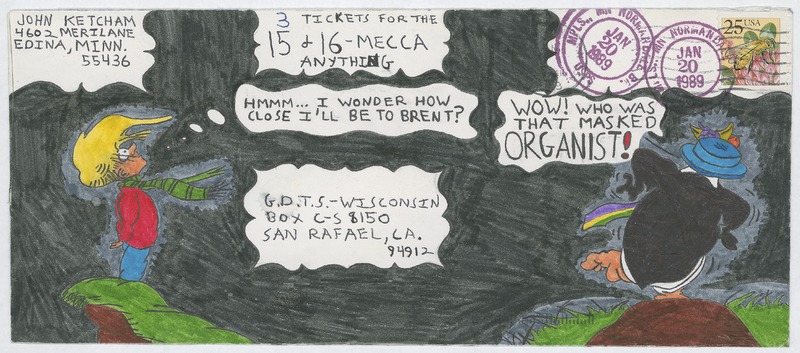 JOHN KETCHAM
4602 MERILANE
EDINA, MINN.
55436
3 TICKETS FOR THE
15 & 16-MECCA
ANYTHING
MPLS., MN NORMANDALE BR.
JAN
20
1989
MN NORMANDALE
JAN
20
1989
25 USA
HMMM... I WONDER HOW
CLOSE I'LL BE TO BRENT?
WOW! WHO WAS
THAT MASKED
ORGANIST!
G.D.T.S.-WISCONSIN
BOX C-S 8150
SAN RAFAEL, CA.
94912